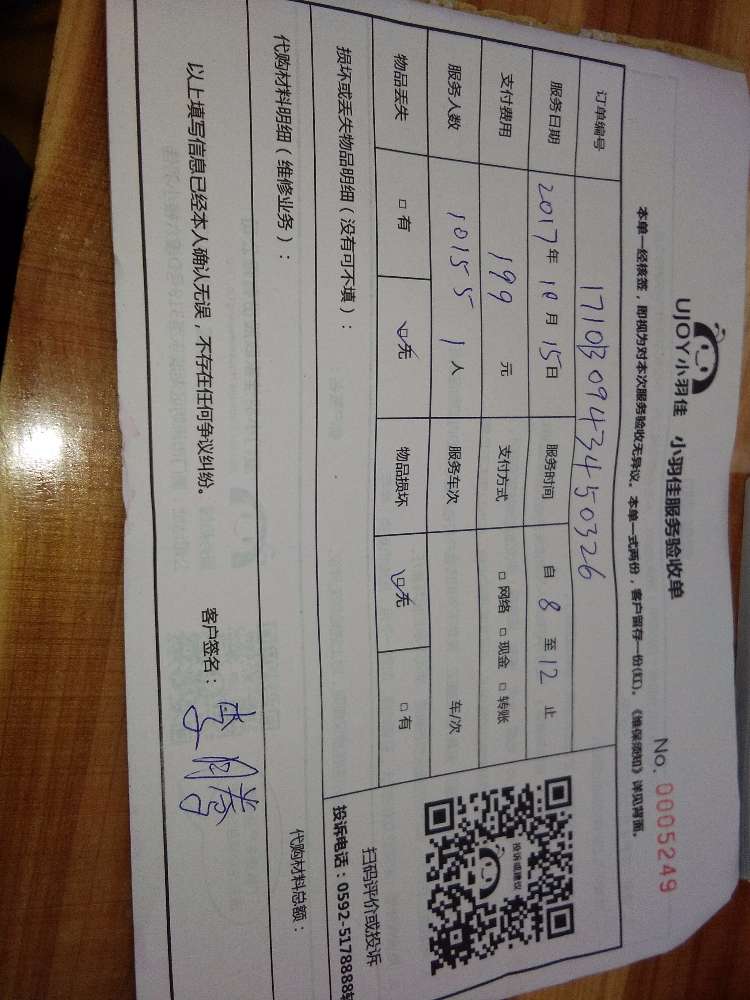 UJOY小羽佳 小羽佳服务验收单 No. 0005249
本单一经核签，即视为对本次服务验收无异议。本单一式两份，客户留存一份(红)。《维保须知》详见背面。
订单编号 171013094345 0326
服务日期 2017年 10月 15日 服务时间 自 8 至 12 止
支付费用 199 元 支付方式 □ 网络 □ 现金 □ 转账
服务人数 10155 1 人 服务车次 车/次
物品丢失 □ 有 ☑无 物品损坏 ☑无 □ 有
损坏或丢失物品明细（没有可不填）：
代购材料明细（维修业务）： 代购材料总额：
以上填写信息已经本人确认无误，不存在任何争议纠纷。 客户签名：
投诉或建议
扫码评价或投诉
投诉电话：0592-5178888